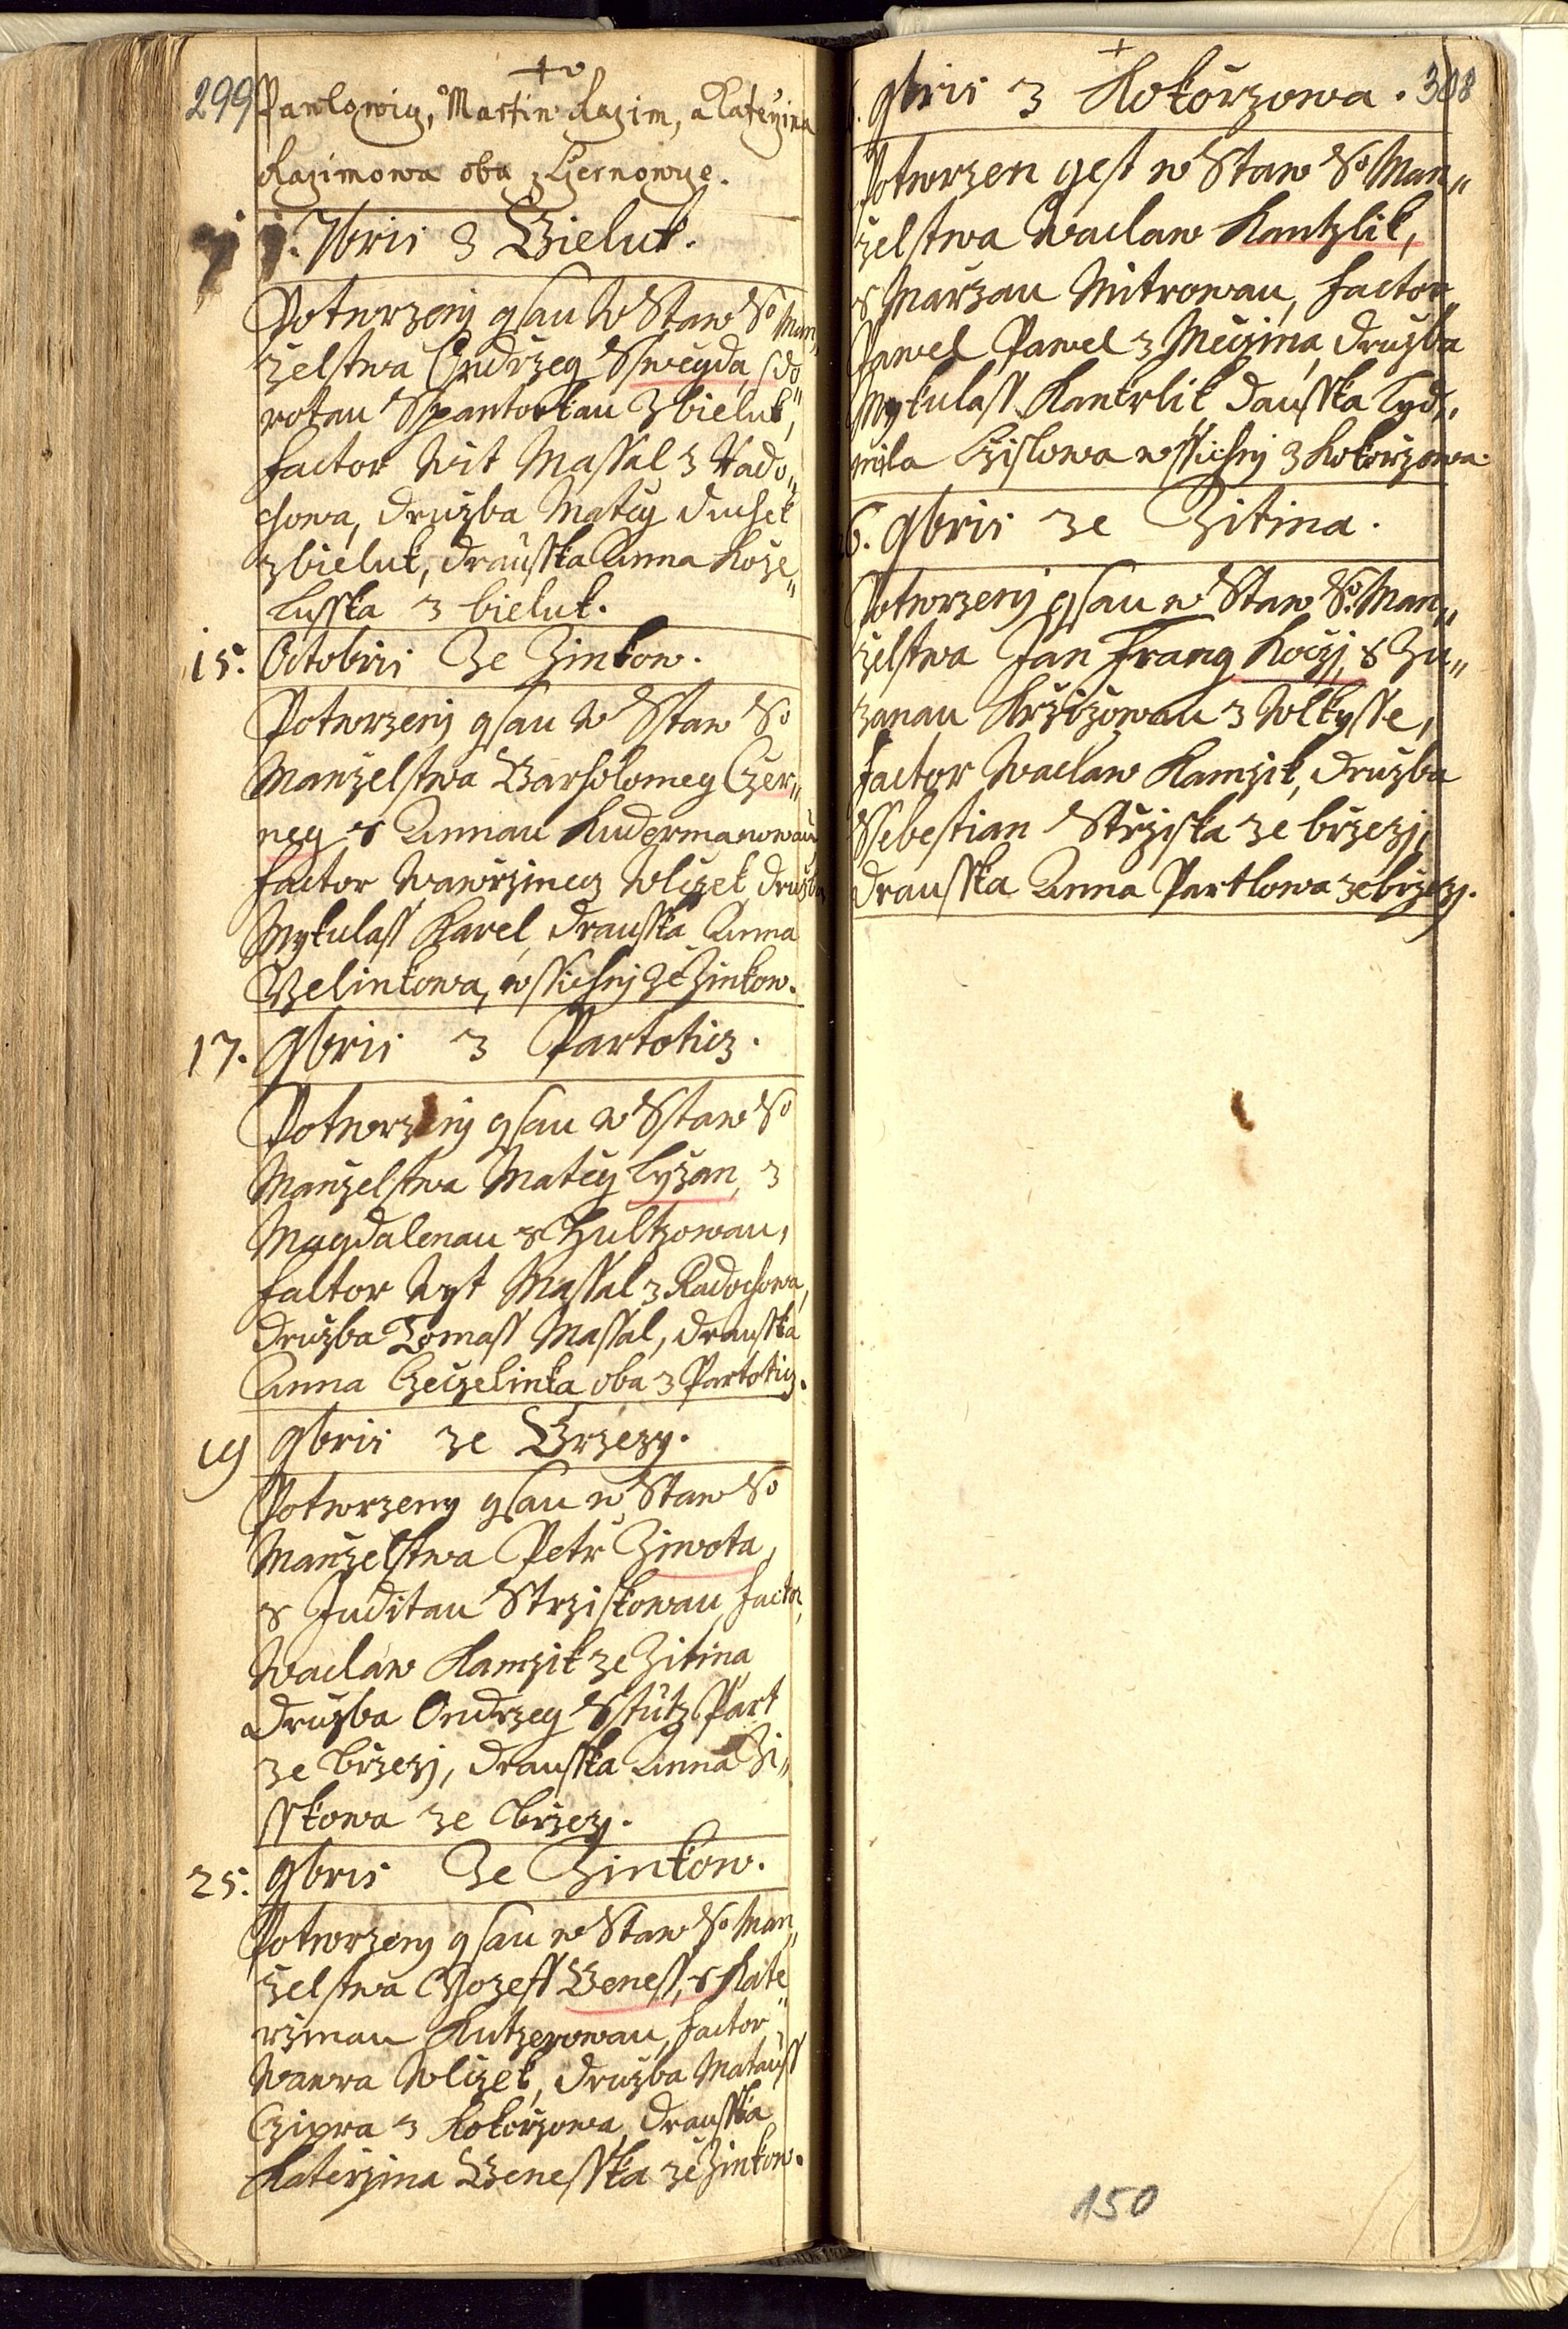 299 Pawlowig, Martin Razim, a Kateyina
Razimowa oba z Czernowze.
7bris z Bieluk.
Potwrzenj gsau W Staw So Man„
zelstwa Ondrzeg Sswegda, s do„
rotau Spantorkau z bieluk,
factor Wit Massal z Rado„
chowa, družba Mateg duchek
z bieluk, drausska Anna Koze„
lusska z bieluk.
15. Octobris Ze Zinkow.
Potwrzenj gsau W Staw So
Manzelstwa Bartholomeg Czer„
neg s Annau Rudermanowau
factor Wawrzinecz Wlczek družba
Mykulass Karel, drausska Anna
Velinkowa, wssichnj ze Zinkow.
17. 9bris z Partoticz.
Potwrzenj gsau w Staw So
Manzelstwa Mateg Lyzan, z
Magdalenau s Hultzowau,
faltor Wyt Massal z Radochowa,
družba Tomass Massal, drausska
Anna Czeczelinka oba z Partoticz.
19 9bris ze Brzezy.
Potwrzeny gsau w Staw So
Manzelstwa Petr Ziwota,
s Juditau Strziskowau, factor,
Waclaw Kamzik ze Zitina
družba Ondrzeg Stutz Part
ze brzezj, drausska Anna Zi„
sskowa ze brzezj.
25. 9bris Ze Zinkow.
Potwrzenj gsau w Staw So Man„
zelstwa Jozeff Beness, s Kate„
rzinau Kutzerowau, factor
Wawra Wlczek, družba Matauss
Czipra z Kokorzowa, drausska
Katerzina Benesska ze Zinkow.
9bris z Kokorzowa. 308
Potwrzen gest w Staw So Man„
zelstwa Waclaw Kantzlik,
s Marzau Mitrowau, factor
Pawel Pawel z Meczina, družba
Mykulass Kantrlik, dausska Lyd„
mila Czislowa wssichnj z Kokorzowa.
6. 9bris ze Zitina.
Potwrzenj gsau w Staw So. Man„
zelstwa Jan Frang Koczj, s Zu„
zanau Krzizowau z Wlkysse,
factor Waclaw Kamzik, družba
Ssebestian Strziska ze brzezj,
drausska Anna Partlowa ze brzezj.
150